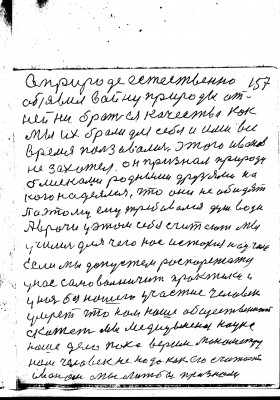 О природе естественно 157
объявил войну природы от-
ней ни братся качества как
мы их брали для себя и ими все
время ползовались. Этого Иванов
не захотел. он признал природу
близкими родными друзями на
кого надеялся, что они не обидят
Поэтому ему требовался дух вода
А врачи у этом себя считают мы
учились для чего нас история научила
Если мы допустем распоряжатся
у нас самовольничит практика и
уноя без нашего участие человек
умрет что нам наше общественность
скажет мы медицинская наука
наше дело пока верим
нам человек не надо как его считают
мы